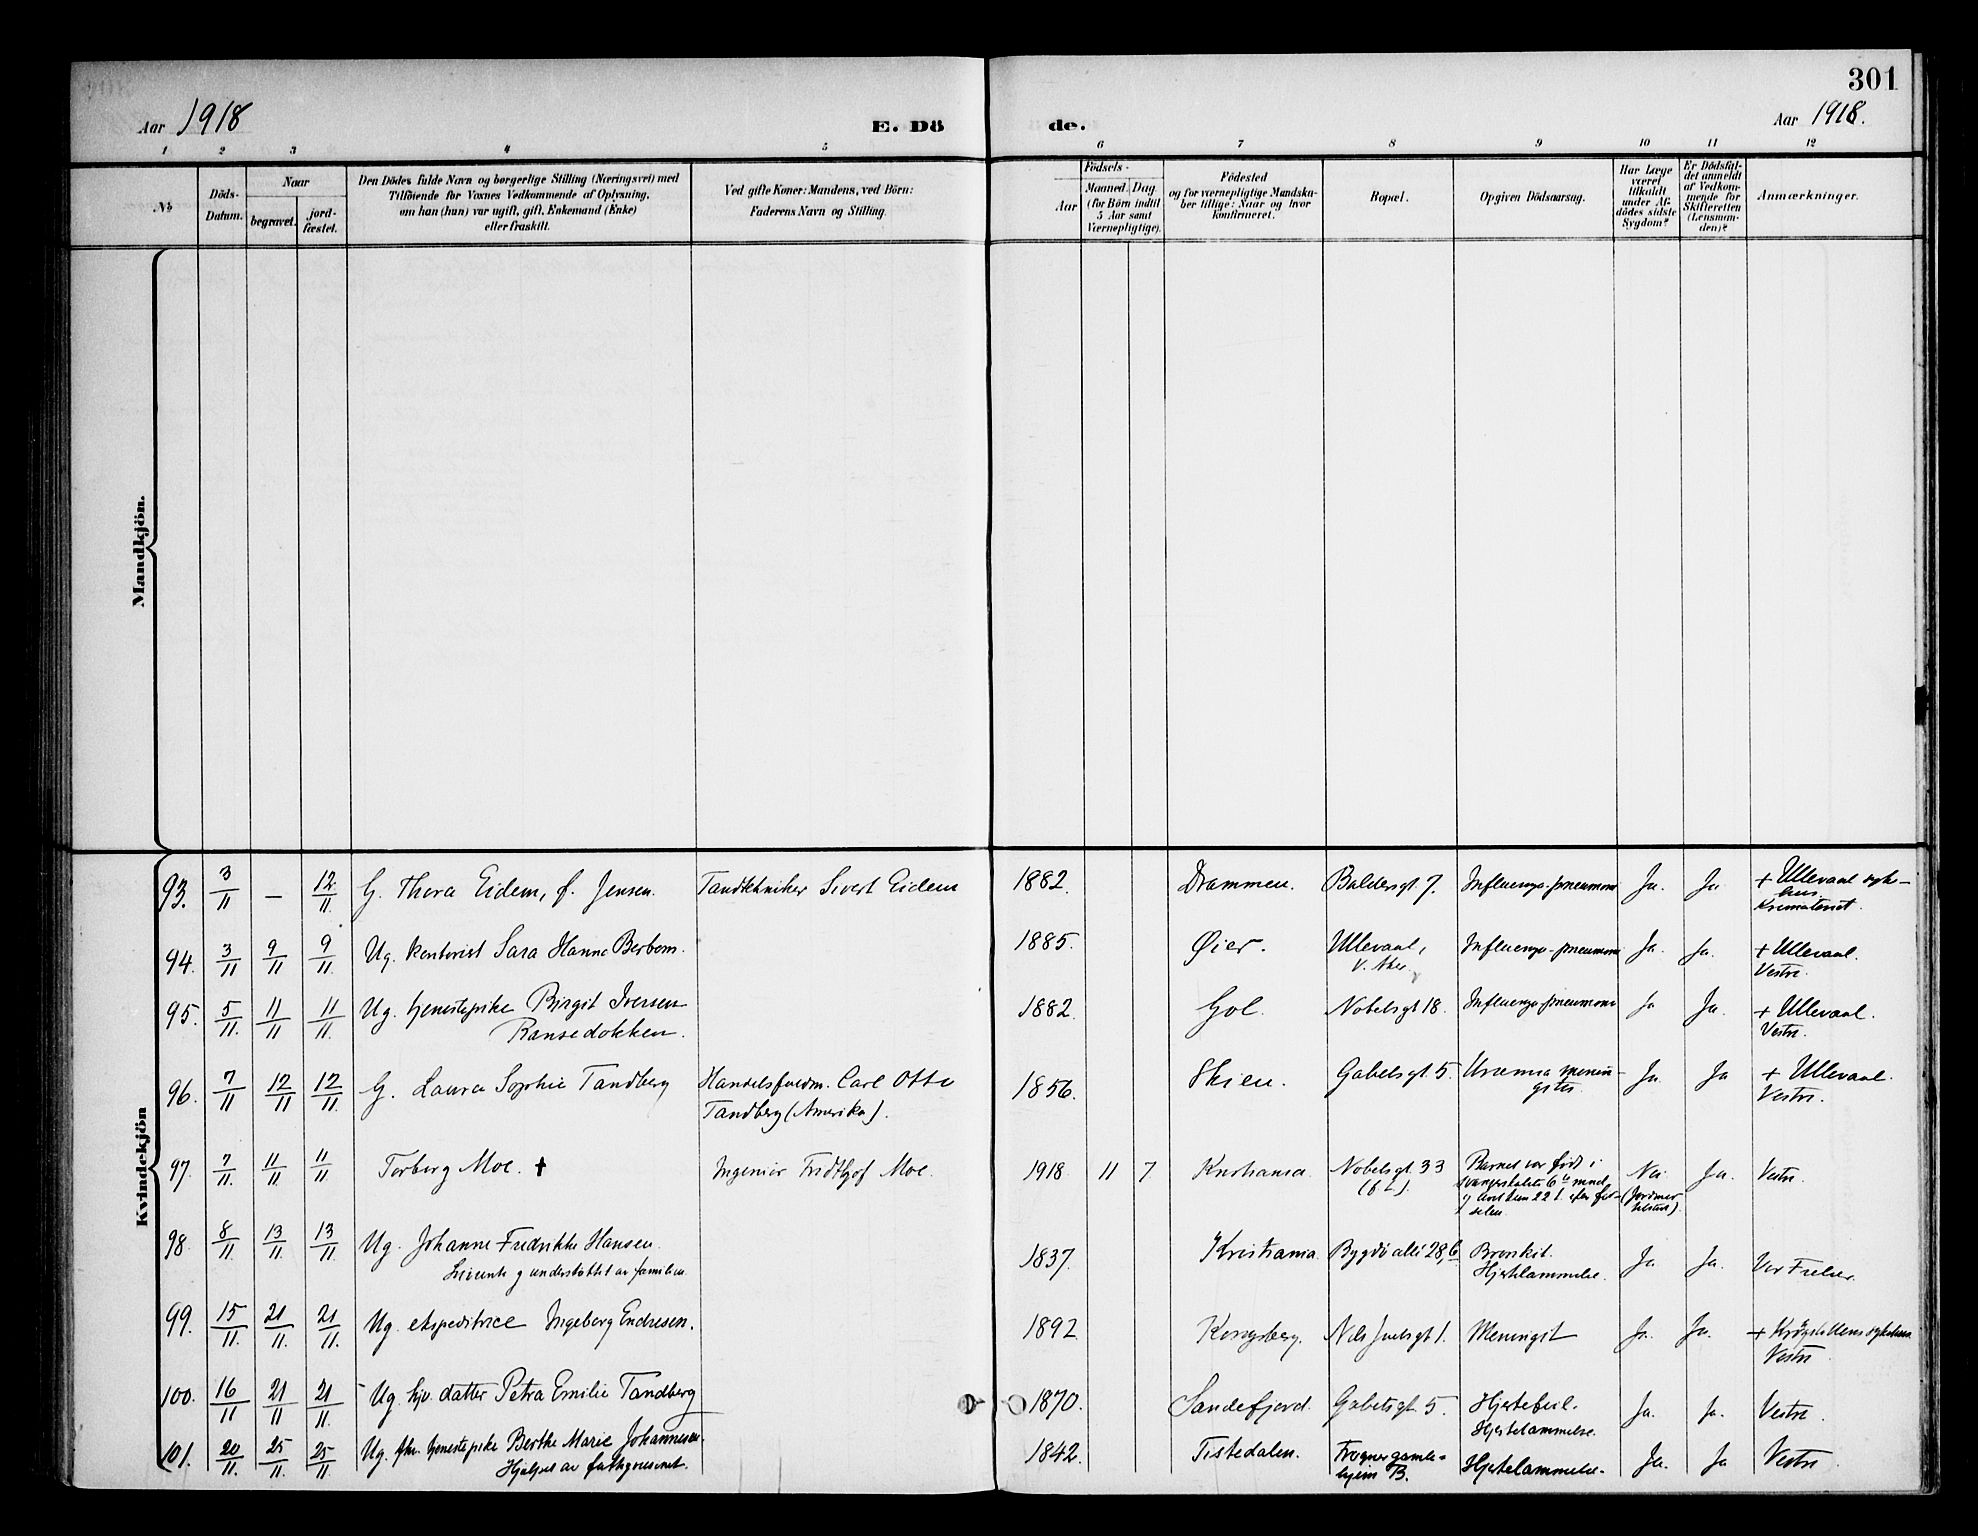 301
Aar 1918
E. Dö
de.
Aar 1918.
1 2 3 4 5 6 7 8 9 10 11 12
№
Döds-
Datum.
Naar
begravet.
jord-
fæstet.
Den Dödes fulde Navn og borgerlige Stilling (Næringsvei) med
Tilföiende for Voxnes Vedkommende af Oplysning,
om han (hun) var ugift, gift, Enkemand (Enke)
eller fraskilt.
Ved gifte Koner: Mandens, ved Börn:
Faderens Navn og Stilling.
Födsels-
Aar
Maaned. Dag
(for Börn indtil
5 Aar samt
Værnepligtige).
Födested
og for værnepligtige Mandska-
ber tillige: Naar og hvor
konfirmeret.
Bopæl.
Opgiven Dödsaarsag.
Har Læge
været
tilkaldt
under Af-
dödes sidste
Sygdom?
Er Dödsfal-
det anmeldt
af Vedkom-
mende for
Skifteretten
(Lensman-
den)?
Anmærkninger.
Mandkjön.
Kvindekjön
93. 3/11 – 12/11. G. Thora Eidem, f. Jensen. Tandtekniker Sivert Eidem 1882. Drammen. Baldersgt. 7. Influenza-pneumoni Ja. Ja + Ullevaal syke-
hus
Krematoriet.
94. 3/11 9/11 9/11. Ug. kontorist Sara Hanna Berbom. 1885. Øier. Ullevaal, Influenza-pneumoni Ja. Ja. + Ullevaal.
V. Aker. Vestre.
95. 5/11. 11/11 11/11. Ug. tjenestepike Birgit Iversen 1882. Gol. Nobelsgt 18. Influenza-pneumoni Ja Ja. + Ullevaal.
Ransedokken. Vestre.
96. 7/11 12/11 12/11. G. Laura Sophie Tandberg Handelsfuldm. Carl Otto 1856. Skien. Gabelsgt. 5. Uræmia menin- Ja Ja + Ullevaal.
Tandberg (Amerika). gitis. Vestre.
97. 7/11. 11/11 11/11. Torborg Moe. † Ingeniør Fridthjof Moe. 1918 11 7. Kristiania. Nobelsgt. 33 Barnet var født i Nei Ja. Vestre.
svangerskabets 6te maaned (Jordmor
tilstede).
selen.
98. 8/11. 13/11 13/11 Ug. Johanne Fredrikke Hansen. 1837. Kristiania. Bygdø allé 28,6 Bronkit. Ja Ja. Vor Frelser.
understøttet av familien. Hjertelammelse.
99. 15/11. 21/11. 21/11. Ug. ekspeditrice Ingeborg Endresen. 1892 Kongsberg. Nils Juelsgt 1. Meningit Ja. Ja. + Krohgstøttens sykehus
Vestre
100. 16/11 21/11 21/11. Ug. hjv. datter Petra Emilie Tandberg 1870. Sandefjord. Gabelsgt. 5. Hjertefeil. Ja. Ja. Vestre.
Hjertelammelse.
101. 20/11. 25/11. 25/11 Ug. fhv. tjenestepike Berthe Marie Johannesen. 1842. Tistedalen. Frogner gamle- Hjertelammelse. Ja. Ja Vestre
Hjulpet av fattigvæsenet. hjem B.